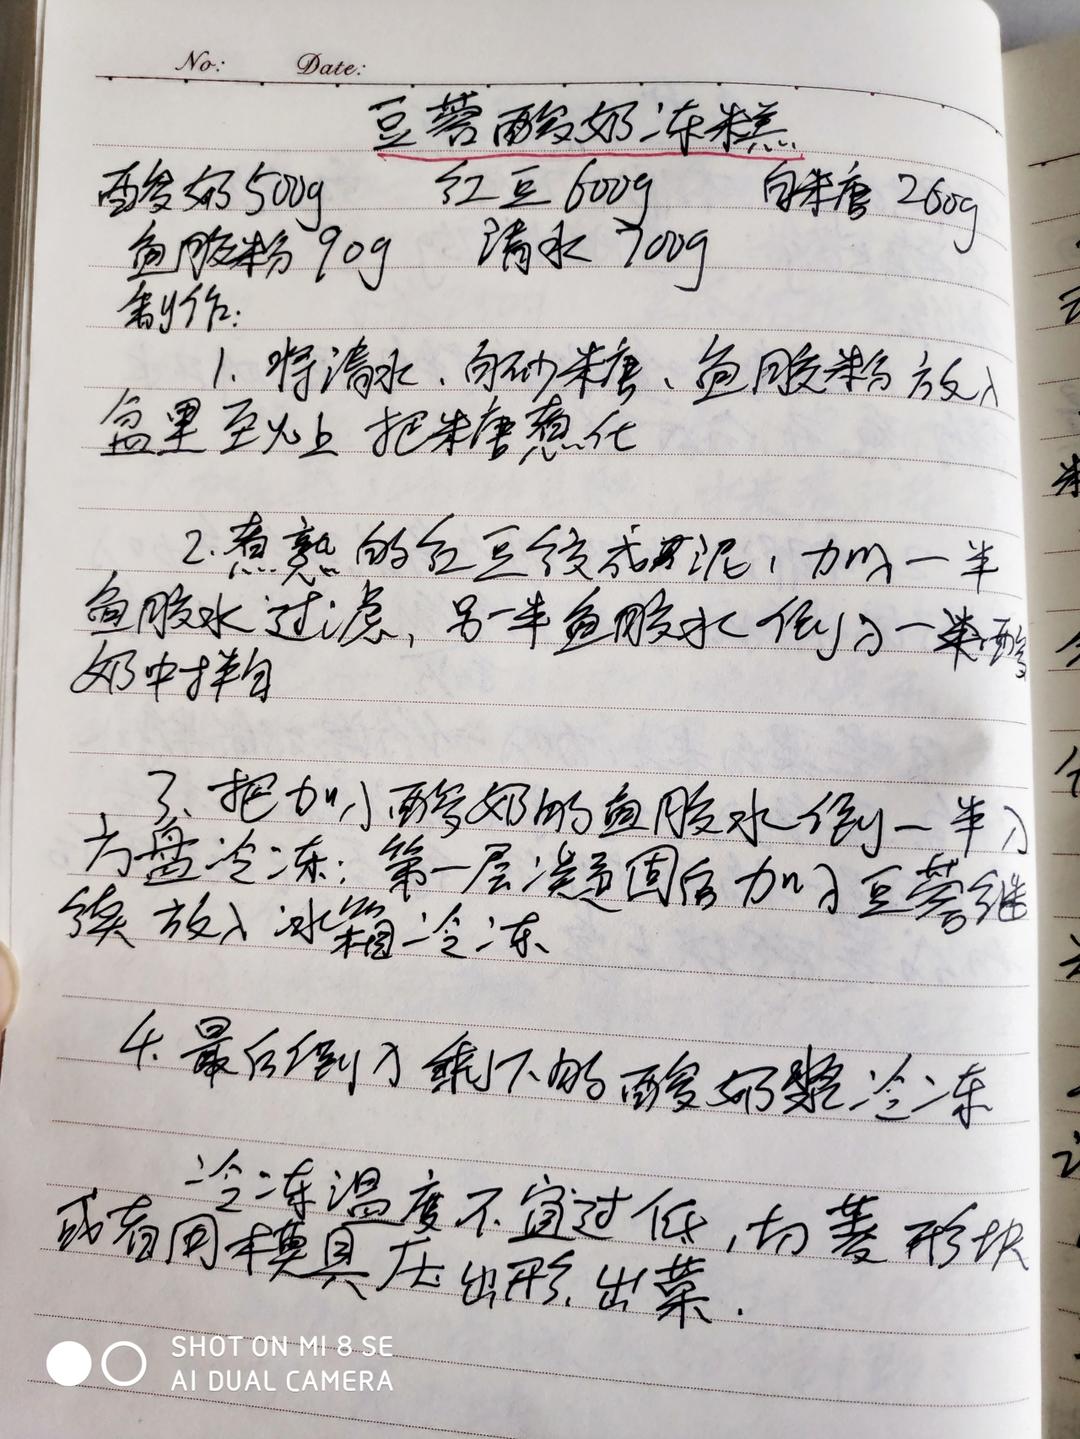 No: Date:
豆蓉酸奶冻糕
酸奶500g 红豆600g 白糖260g
鱼胶粉90g 清水700g
制作:
1. 将清水、白砂糖、鱼胶粉放入
盆里至火上把糖熬化
2. 煮熟的红豆绞成泥,加入一半
鱼胶水过滤,另一半鱼胶水倒入酸
奶中拌匀
3. 把加入酸奶的鱼胶水倒一半入
方盘冷冻;第一层凝固后加入豆蓉继
续放入冰箱冷冻
4. 最后倒入剩下的酸奶浆冷冻
冷冻温度不宜过低,切菱形块
或者用模具压出形.出菜.
SHOT ON MI 8 SE
AI DUAL CAMERA